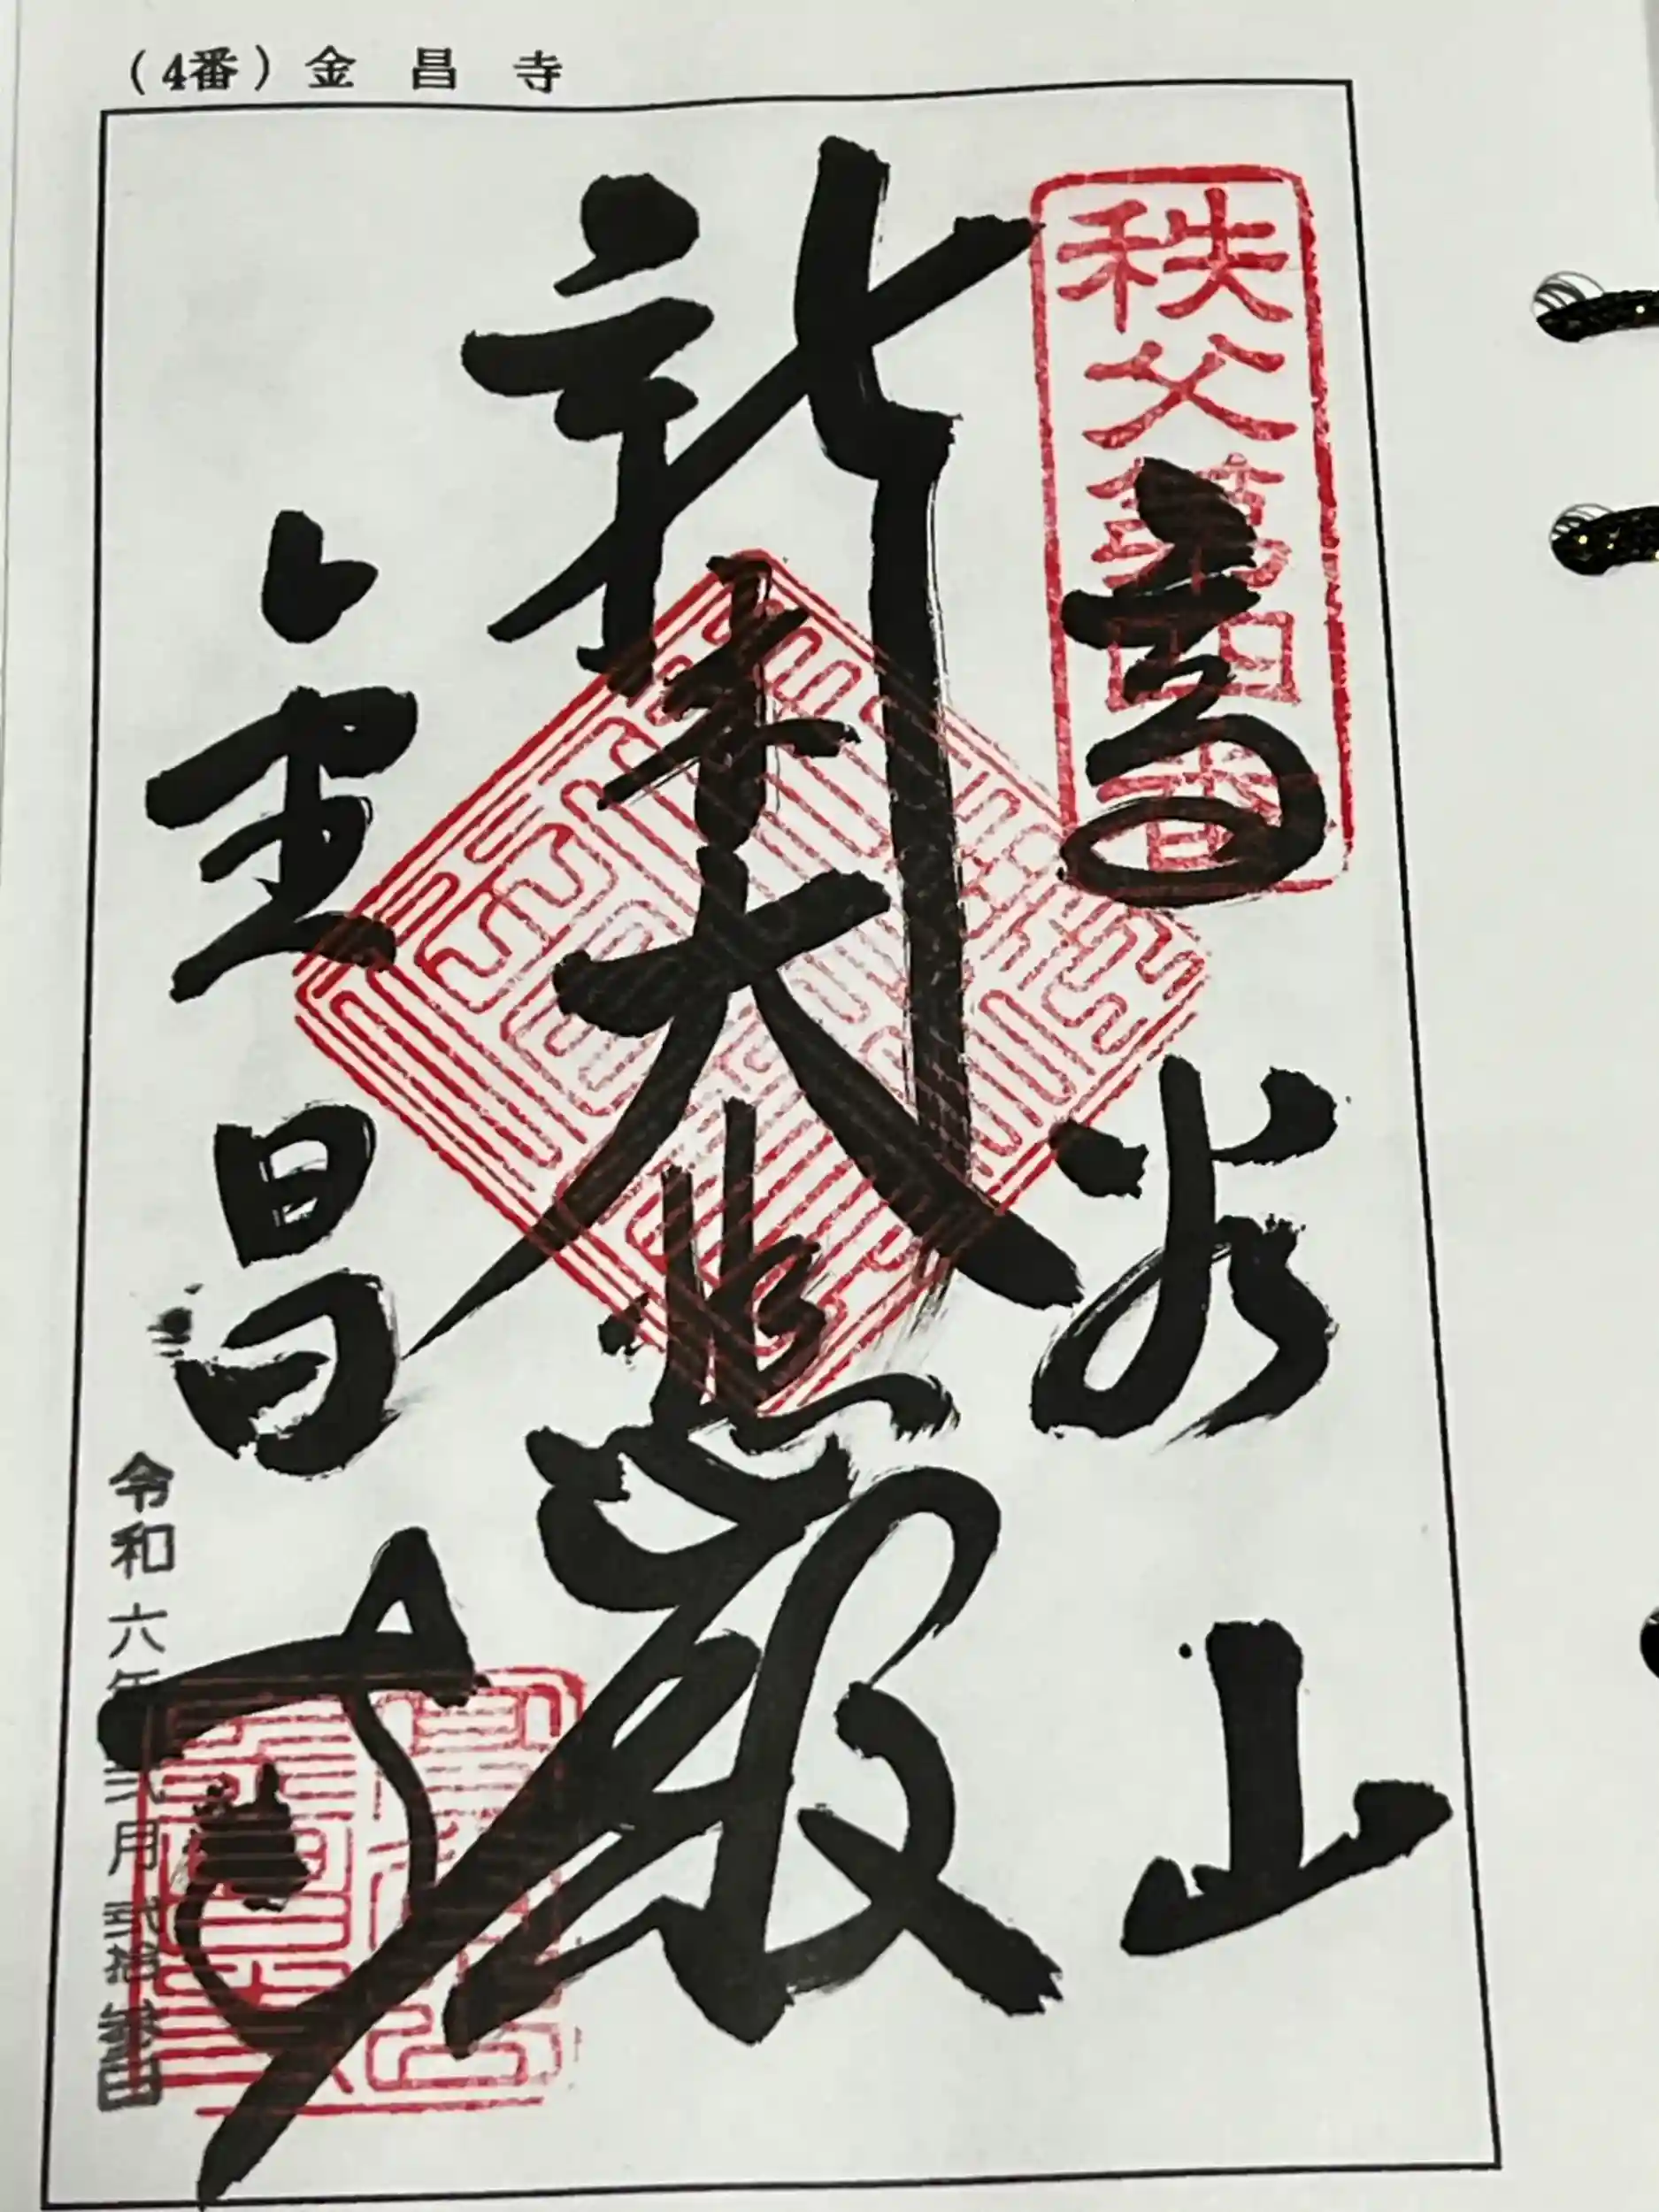 (4番) 金昌寺
秩父第四番
高谷山
新木大悲殿
金昌寺
令和六年
月弐拾
日